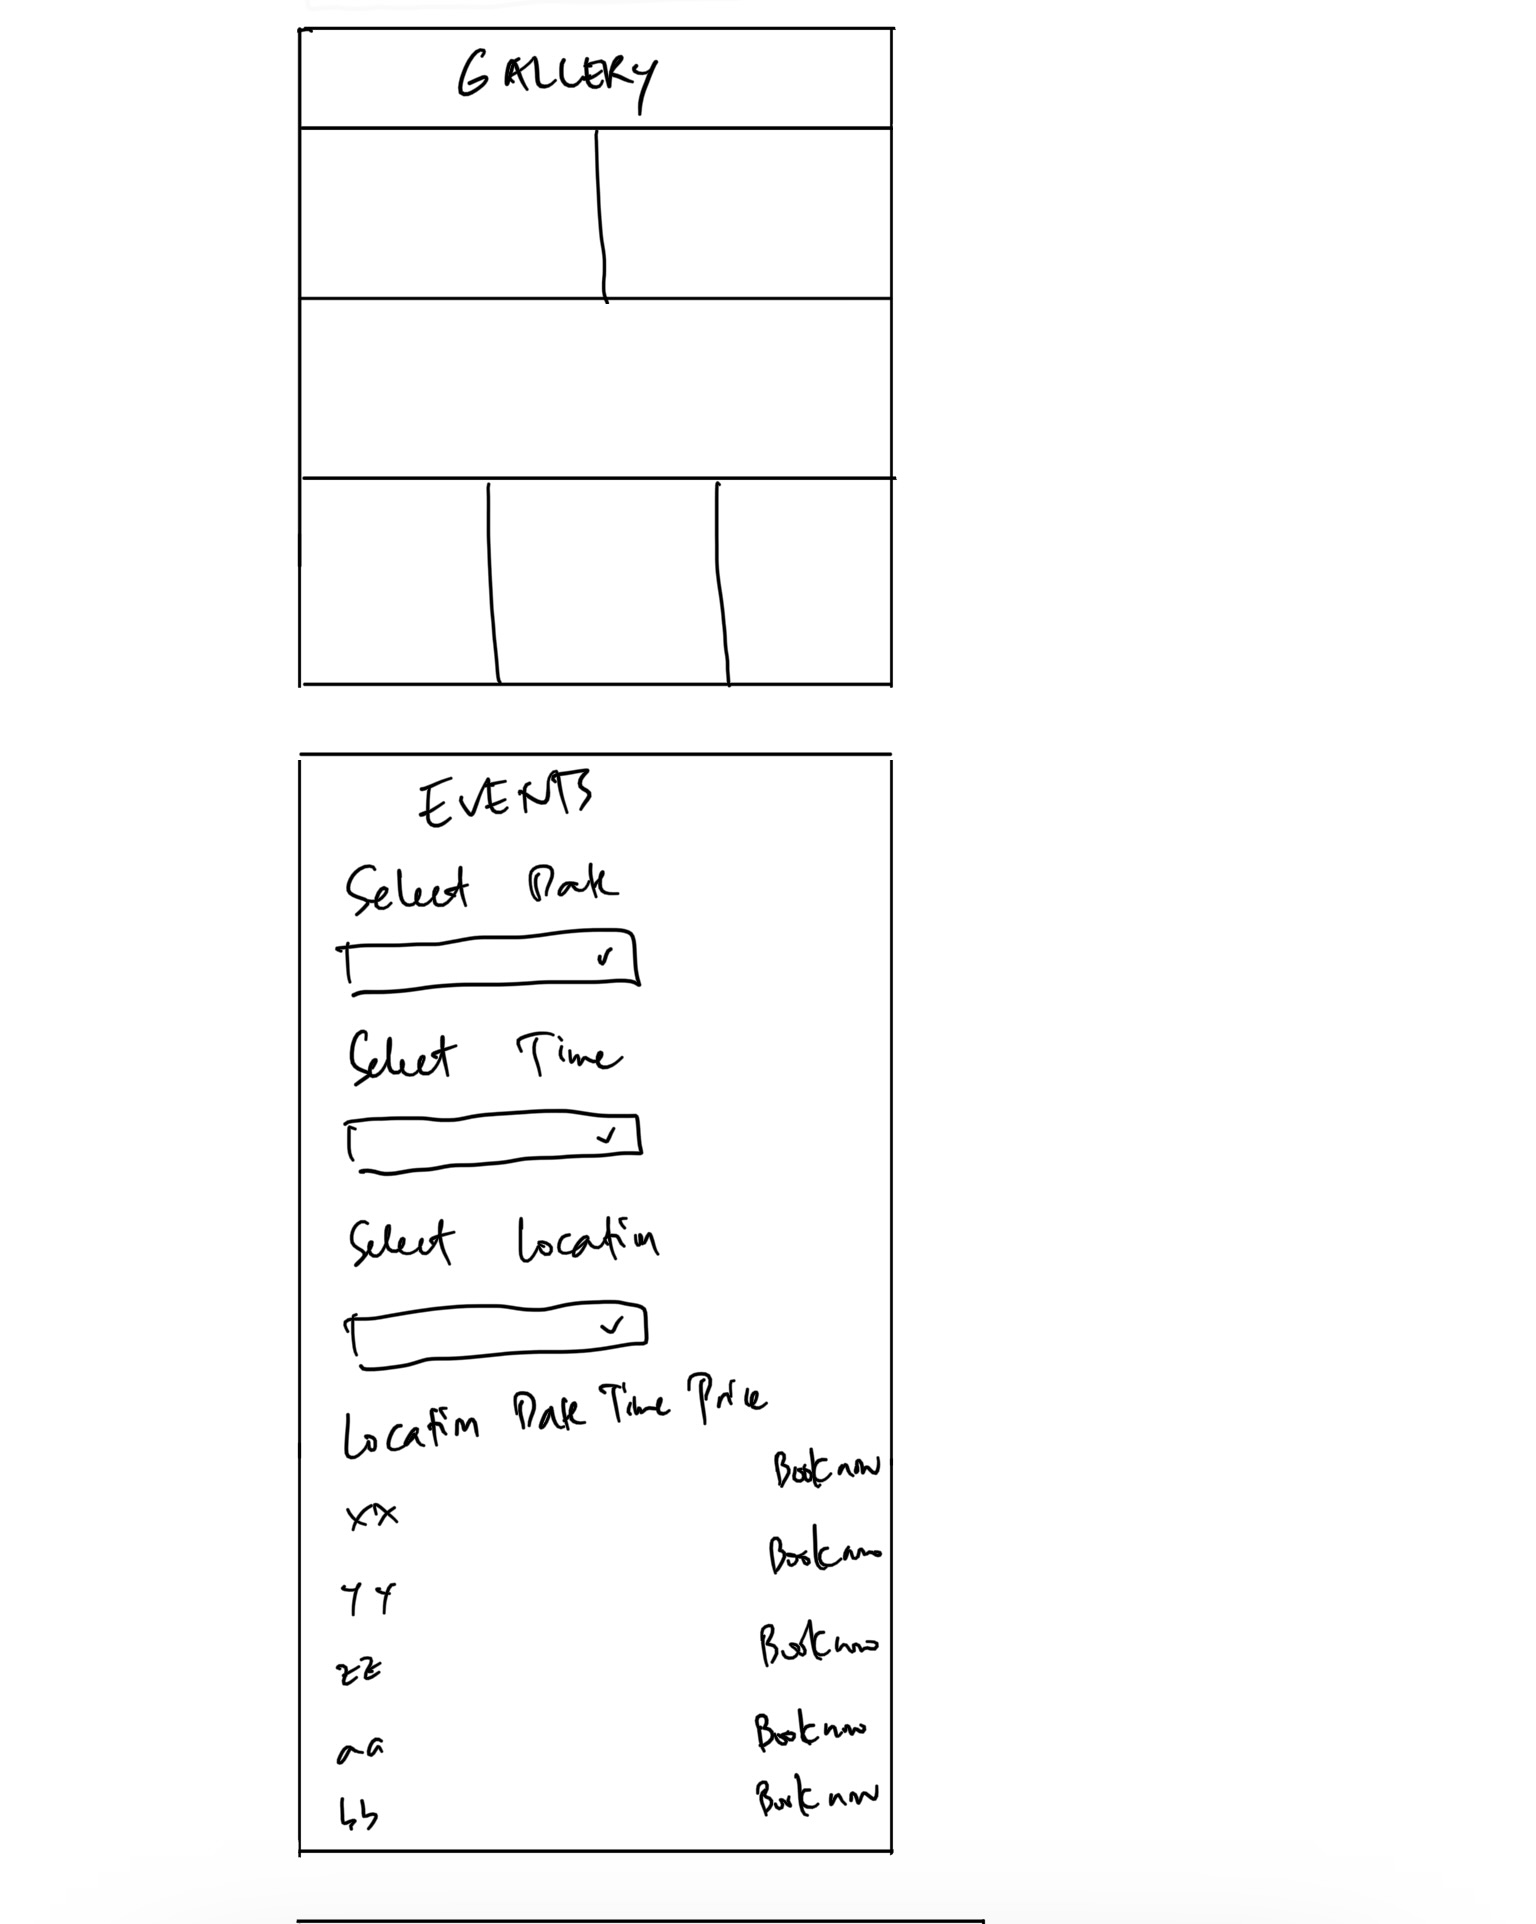 GALLERY
EVENTS
Select Date
Select Time
Select Location
Location Date Time Price
Book now
xx
Book now
yy
Book now
zz
Book now
aa
Book now
bb